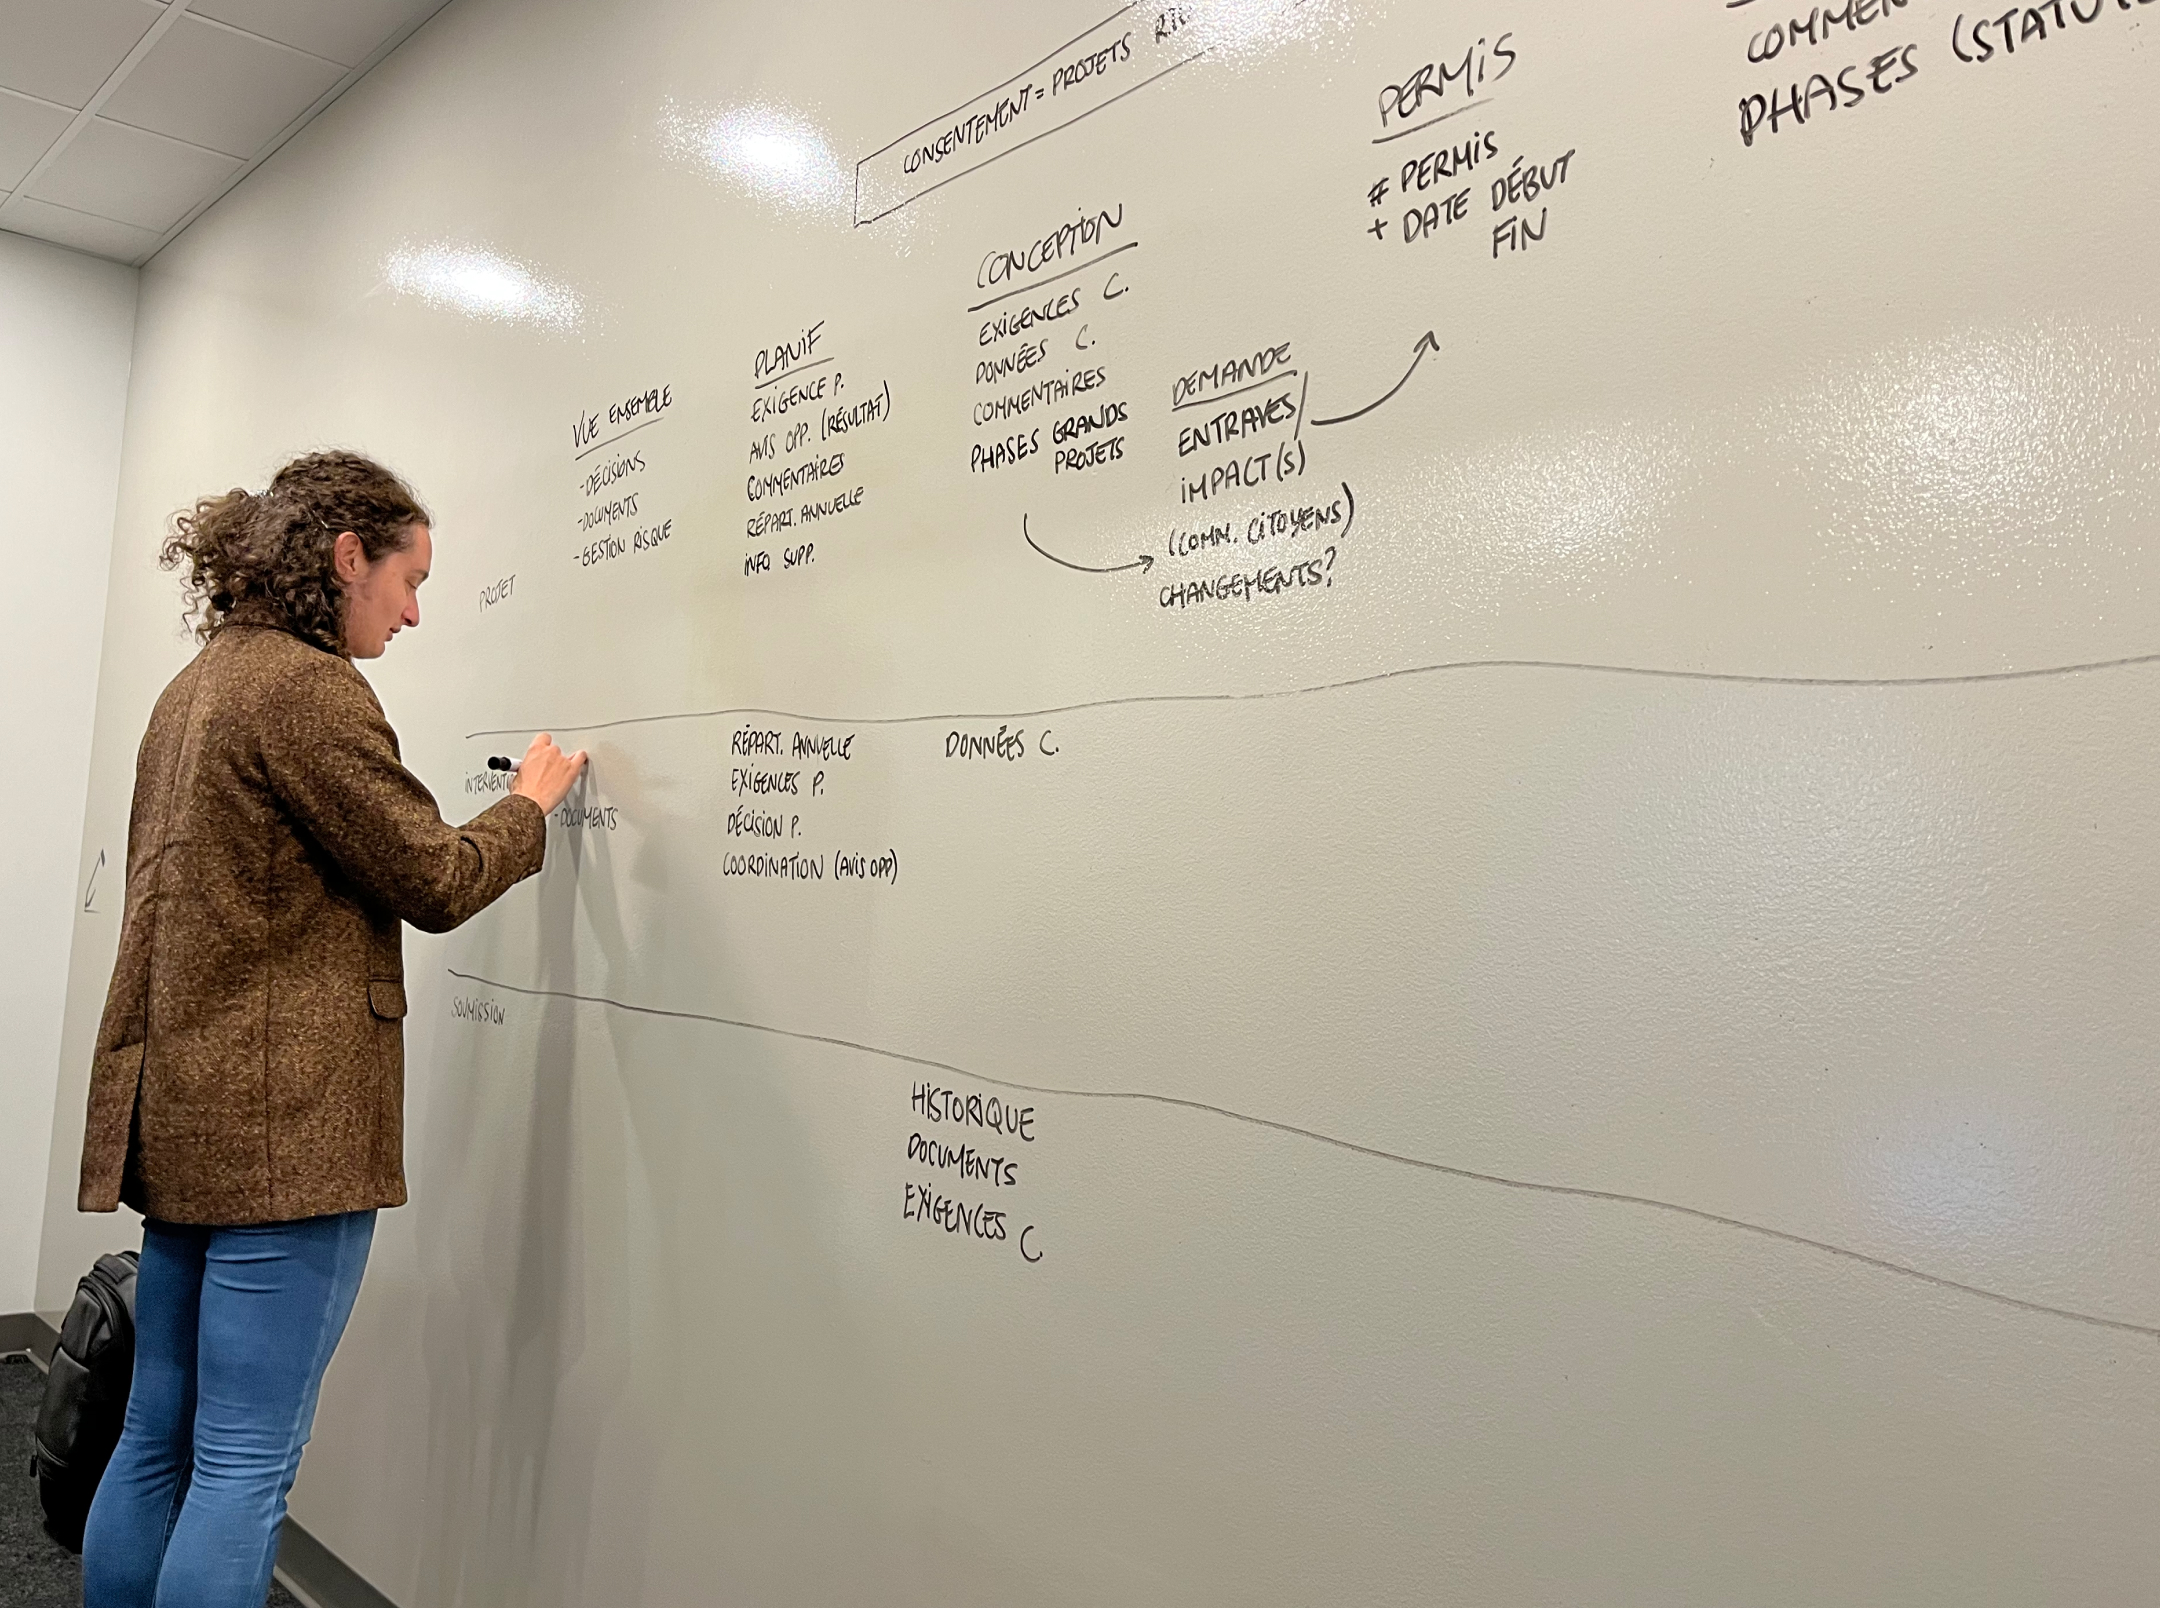 CONSENTEMENT = PROJETS
PROJET
VUE ENSEMBLE
- DÉCISIONS
- DOCUMENTS
- GESTION RISQUE
PLANIF
EXIGENCE P.
AVIS OPP. (RÉSULTAT)
COMMENTAIRES
RÉPART. ANNUELLE
INFO SUPP.
CONCEPTION
EXIGENCES C.
DONNÉES C.
COMMENTAIRES
PHASES GRANDS
PROJETS
DEMANDE
ENTRAVES/
IMPACT(S)
(COMM. CITOYENS)
CHANGEMENTS?
PERMIS
# PERMIS
+ DATE DÉBUT
FIN
PHASES
- DOCUMENTS
RÉPART. ANNUELLE
EXIGENCES P.
DÉCISION P.
COORDINATION (AVIS OPP)
DONNÉES C.
SOUMISSION
HISTORIQUE
DOCUMENTS
EXIGENCES C.